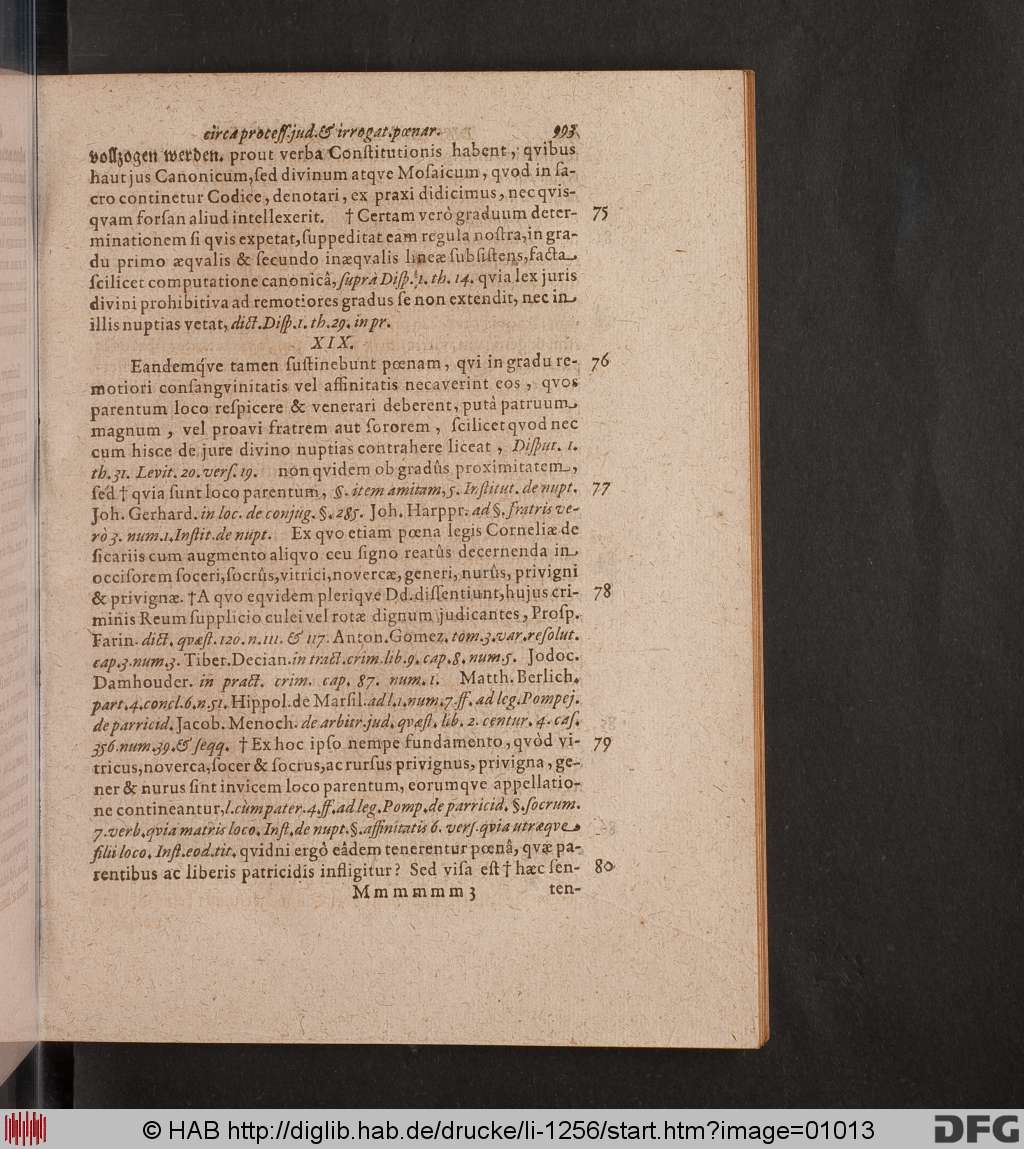 circa proceſſ. jud. & irrogat. pœnar. 993
vollzogen werden. prout verba Conſtitutionis habent, qvibus
haut jus Canonicum, ſed divinum atqve Moſaicum, qvod in ſa-
cro continetur Codice, denotari, ex praxi didicimus, nec qvis-
qvam forſan aliud intellexerit. † Certam verò graduum deter- 75
minationem ſi qvis expetat, ſuppeditat eam regula noſtra, in gra-
du primo æqvalis & ſecundo inæqvalis lineæ ſubſiſtens, facta
ſcilicet computatione canonicâ, ſuprà Diſp. 1. th. 14. qvia lex juris
divini prohibitiva ad remotiores gradus ſe non extendit, nec in
illis nuptias vetat, dict. Diſp. 1. th. 29. in pr.
XIX.
Eandemq́ve tamen ſuſtinebunt pœnam, qvi in gradu re- 76
motiori conſangvinitatis vel affinitatis necaverint eos, qvos
parentum loco reſpicere & venerari deberent, putà patruum
magnum, vel proavi fratrem aut ſororem, ſcilicet qvod nec
cum hisce de jure divino nuptias contrahere liceat, Diſput. 1.
th. 31. Levit. 20. verſ. 19. non qvidem ob gradûs proximitatem,
ſed † qvia ſunt loco parentum, §. item amitam, 5. Inſtitut. de nupt. 77
Joh. Gerhard. in loc. de conjug. §. 285. Joh. Harppr. ad §. fratris ve-
rò 3. num. 1. Inſtit. de nupt. Ex qvo etiam pœna legis Corneliæ de
ſicariis cum augmento aliqvo ceu ſigno reatûs decernenda in
occiſorem ſoceri, ſocrûs, vitrici, novercæ, generi, nurûs, privigni
& privignæ. † A qvo eqvidem pleriqve Dd. diſſentiunt, hujus cri- 78
minis Reum ſupplicio culei vel rotæ dignum judicantes, Proſp.
Farin. dict. qvæſt. 120. n. 111. & 117. Anton. Gomez. tom. 3. var. reſolut.
cap. 3. num. 3. Tiber. Decian. in tract. crim. lib. 9. cap. 8. num. 5. Jodoc.
Damhouder. in pract. crim. cap. 87. num. 1. Matth. Berlich.
part. 4. concl. 6. n. 51. Hippol. de Marſil. ad l. 1. num. 7. ff. ad leg. Pompej.
de parricid. Jacob. Menoch. de arbitr. jud. qvæſt. lib. 2. centur. 4. caſ.
356. num. 39. & ſeqq. † Ex hoc ipſo nempe fundamento, qvòd vi- 79
tricus, noverca, ſocer & ſocrus, ac rurſus privignus, privigna, ge-
ner & nurus ſint invicem loco parentum, eorumqve appellatio-
ne contineantur, l. cùm pater. 4. ff. ad leg. Pomp. de parricid. §. ſocrum.
7. verb. qvia matris loco. Inſt. de nupt. §. affinitatis 6. verſ. qvia utræqve
filii loco. Inſt. eod. tit. qvidni ergò eâdem tenerentur pœnâ, qvæ pa-
rentibus ac liberis patricidis infligitur? Sed viſa eſt † hæc ſen- 80
M m m m m m 3 ten-
© HAB http://diglib.hab.de/drucke/li-1256/start.htm?image=01013
DFG